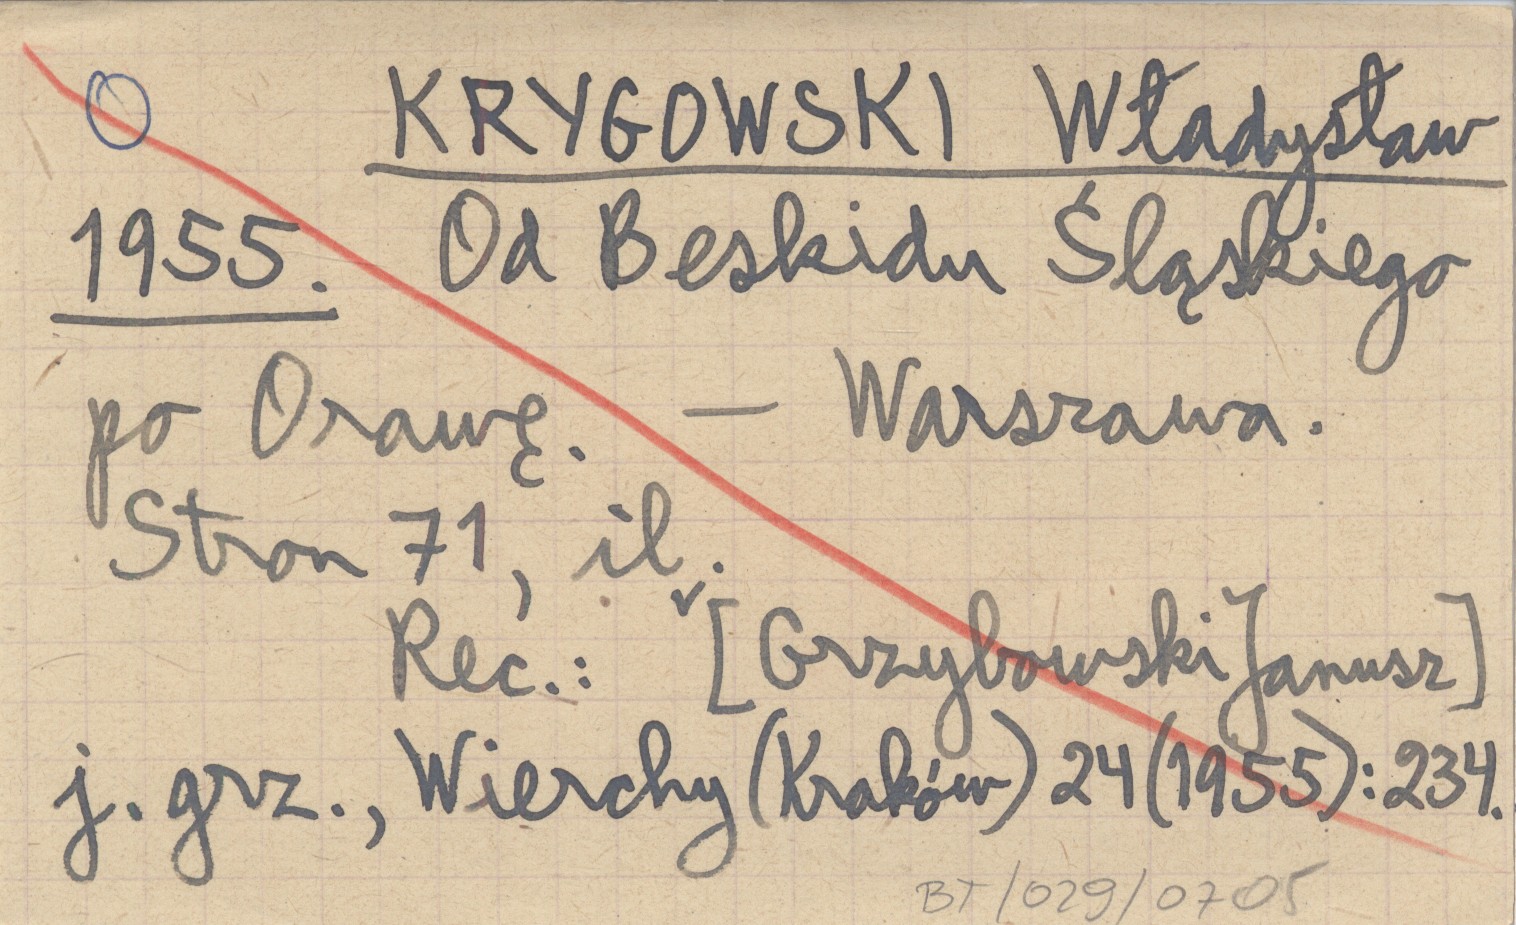 KRYGOWSKI Władysław
1955. Od Beskidu Śląskiego
po Orawę. — Warszawa.
Stron 71, il.
Rec.: [Grzybowski Janusz]
j. grz., Wierchy (Kraków) 24 (1955): 234.
BT/029/0705